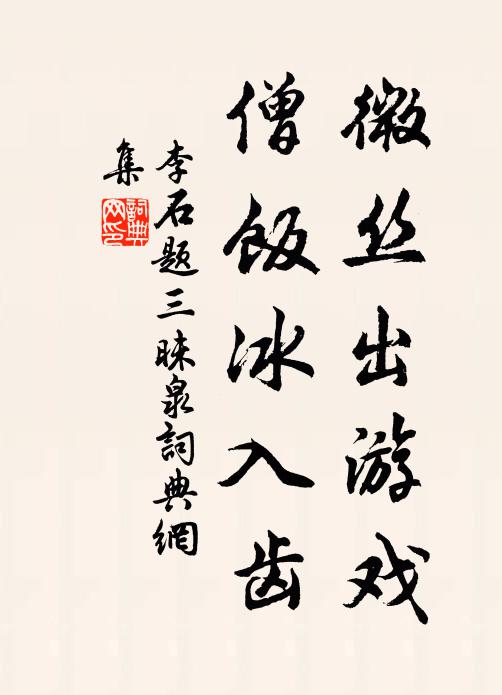 微丝出游戏
僧饭冰入齿
李石题三昧泉詞典網
集
詞典
网印